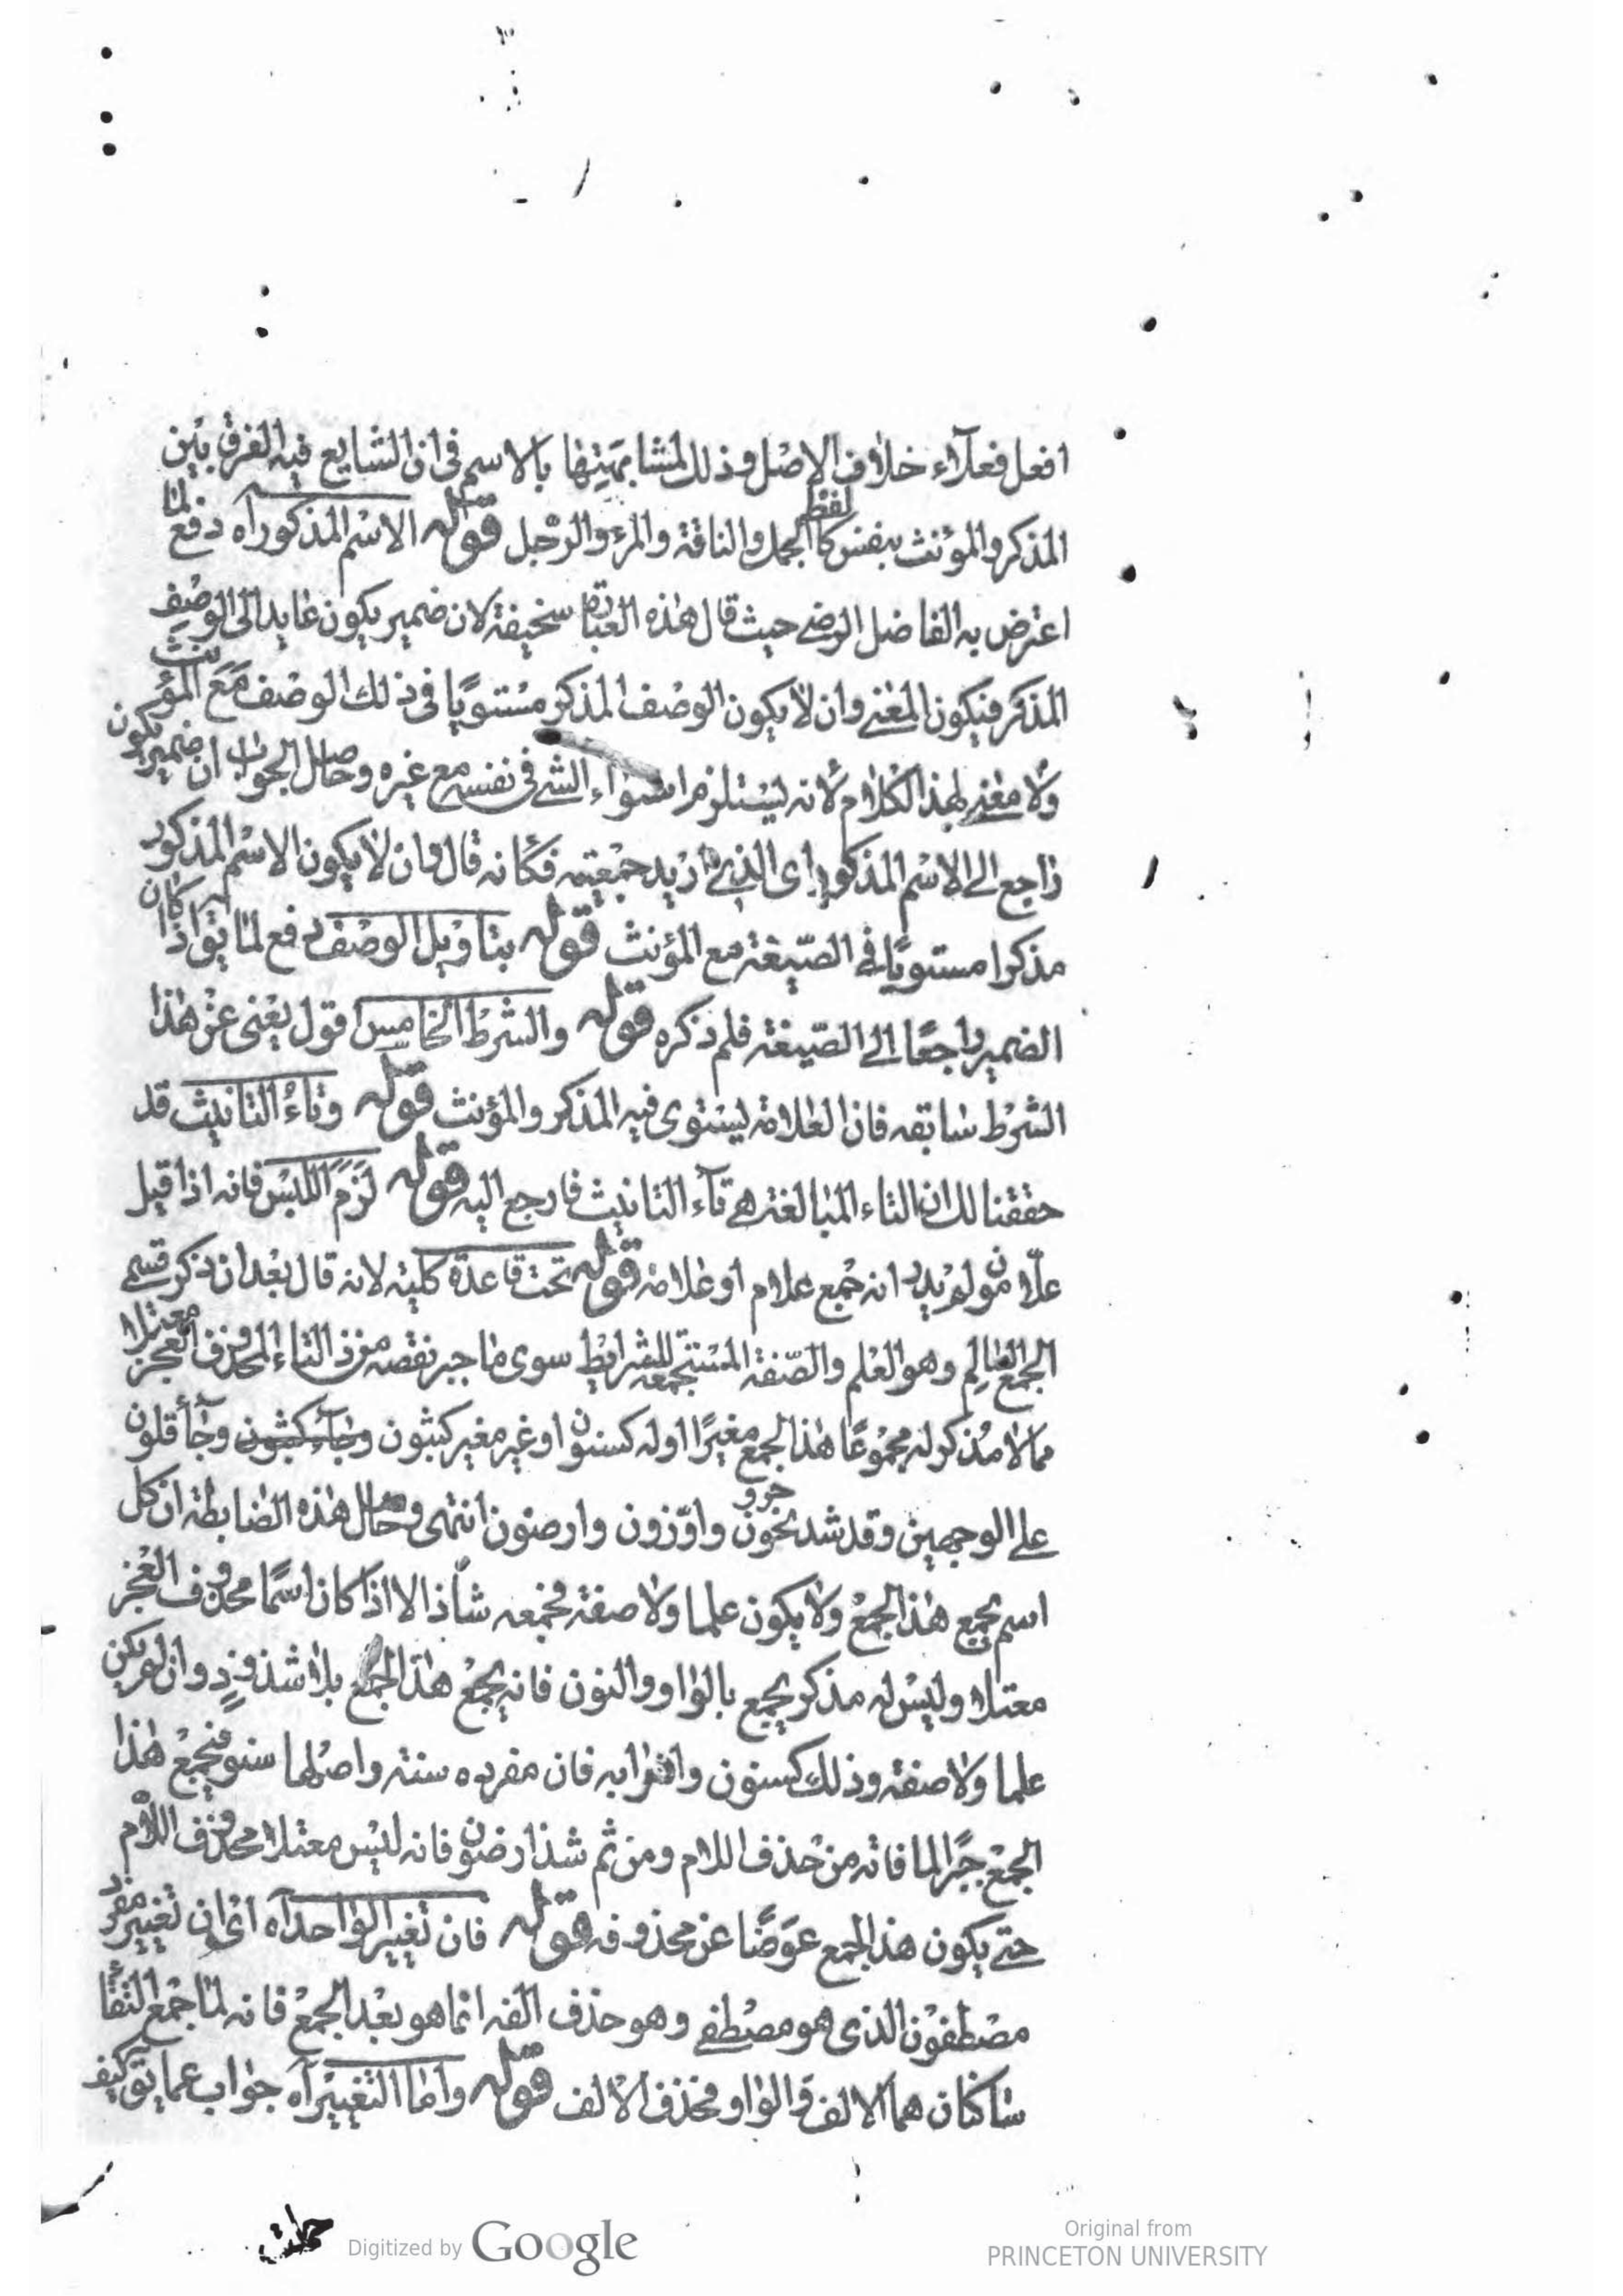 افعل فعلآء خلاف الاصل وذلك لمشابهتها بالاسم فى ان الشايع فيه الفرق بين
المذكر والمؤنث بنفس لفظ كالجمل والناقة والمرء والرجل قوله الاسم المذكور آه دفع لما
اعترض به الفاضل الرضى حيث قال هذه العبارة سخيفة لان ضمير يكون عايد الى الوصف
المذكر فيكون المعنى وان لا يكون الوصف المذكر مستويًا فى ذلك الوصف مع المؤنث
ولا معنى لهذا الكلام لانه يستلزم استواء الشى فى نفسه مع غيره وحاصل الجواب ان ضمير يكون
راجع الى الاسم المذكور اى الذى اريد جمعيته فكانه قال وان لا يكون الاسم المذكور
مذكرا مستويًا فى الصّيغة مع المؤنث قوله بتاويل الوصف دفع لما يق اذا كان
الضمير راجعًا الى الصّيغة فلم ذكره قوله والشرط الخامس اقول يغنى عن هذا
الشرط سابقه فان العلامة يستوى فيه المذكر والمؤنث قوله وتاء التانيث قد
حققنا لك ان التاء المبالغة هى تآء التانيث فارجع اليه قوله لزم اللبس فانه اذا قيل
علّامون لم يدر انه جمع علام او علامة قوله تحت قاعدة كلية لانه قال بعد ان ذكر قسمى
الجمع السالم وهو العلم والصّفة المستجمعة للشرايط سوى ما جبر نقصه من ذى التاء المحذوف العجز معتلا
مما لا مذكر له مجموعًا هذا الجمع مغيرًا اوله كسنون او غير مغير كثبون وجآء كثبون وجآء قلون
على الوجهين وقد شذ نحو حرون واوّزون وارضون انتهى وحاصل هذه الضابطة ان كل
اسم يجمع هذا الجمع ولا يكون علما ولا صفة فجمعه شاذ الا اذا كان اسمًا محذوف العجز
معتلا وليس له مذكر يجمع بالواو والنون فانه يجمع هذا الجمع بلا شذوذ وان لم يكن
علما ولا صفة وذلك كسنون واضرابه فان مفرده سنة واصلها سنو فيجمع هذا
الجمع جبرًا لما فاته من حذف اللام ومن ثم شذ ارضون فانه ليس معتلا محذوف اللام
حتى يكون هذا الجمع عوضًا عن محذوفه قوله فان تغير الواحد آه اى ان تغيير مفرد
مصطفون الذى هو مصطفى وهو حذف الفه انما هو بعد الجمع فانه لما جمع التقا
ساكنان هما الالف والواو فحذف الالف قوله واما التغيير آه جواب عما يق كيف
Digitized by Google
Original from
PRINCETON UNIVERSITY